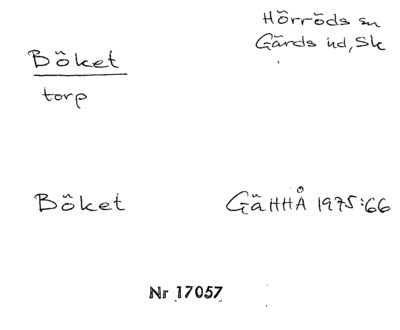 Hörröds sn
Böket
Gärds hd, Sk
torp
Böket
GäHHÅ 1975:66
Nr 17057